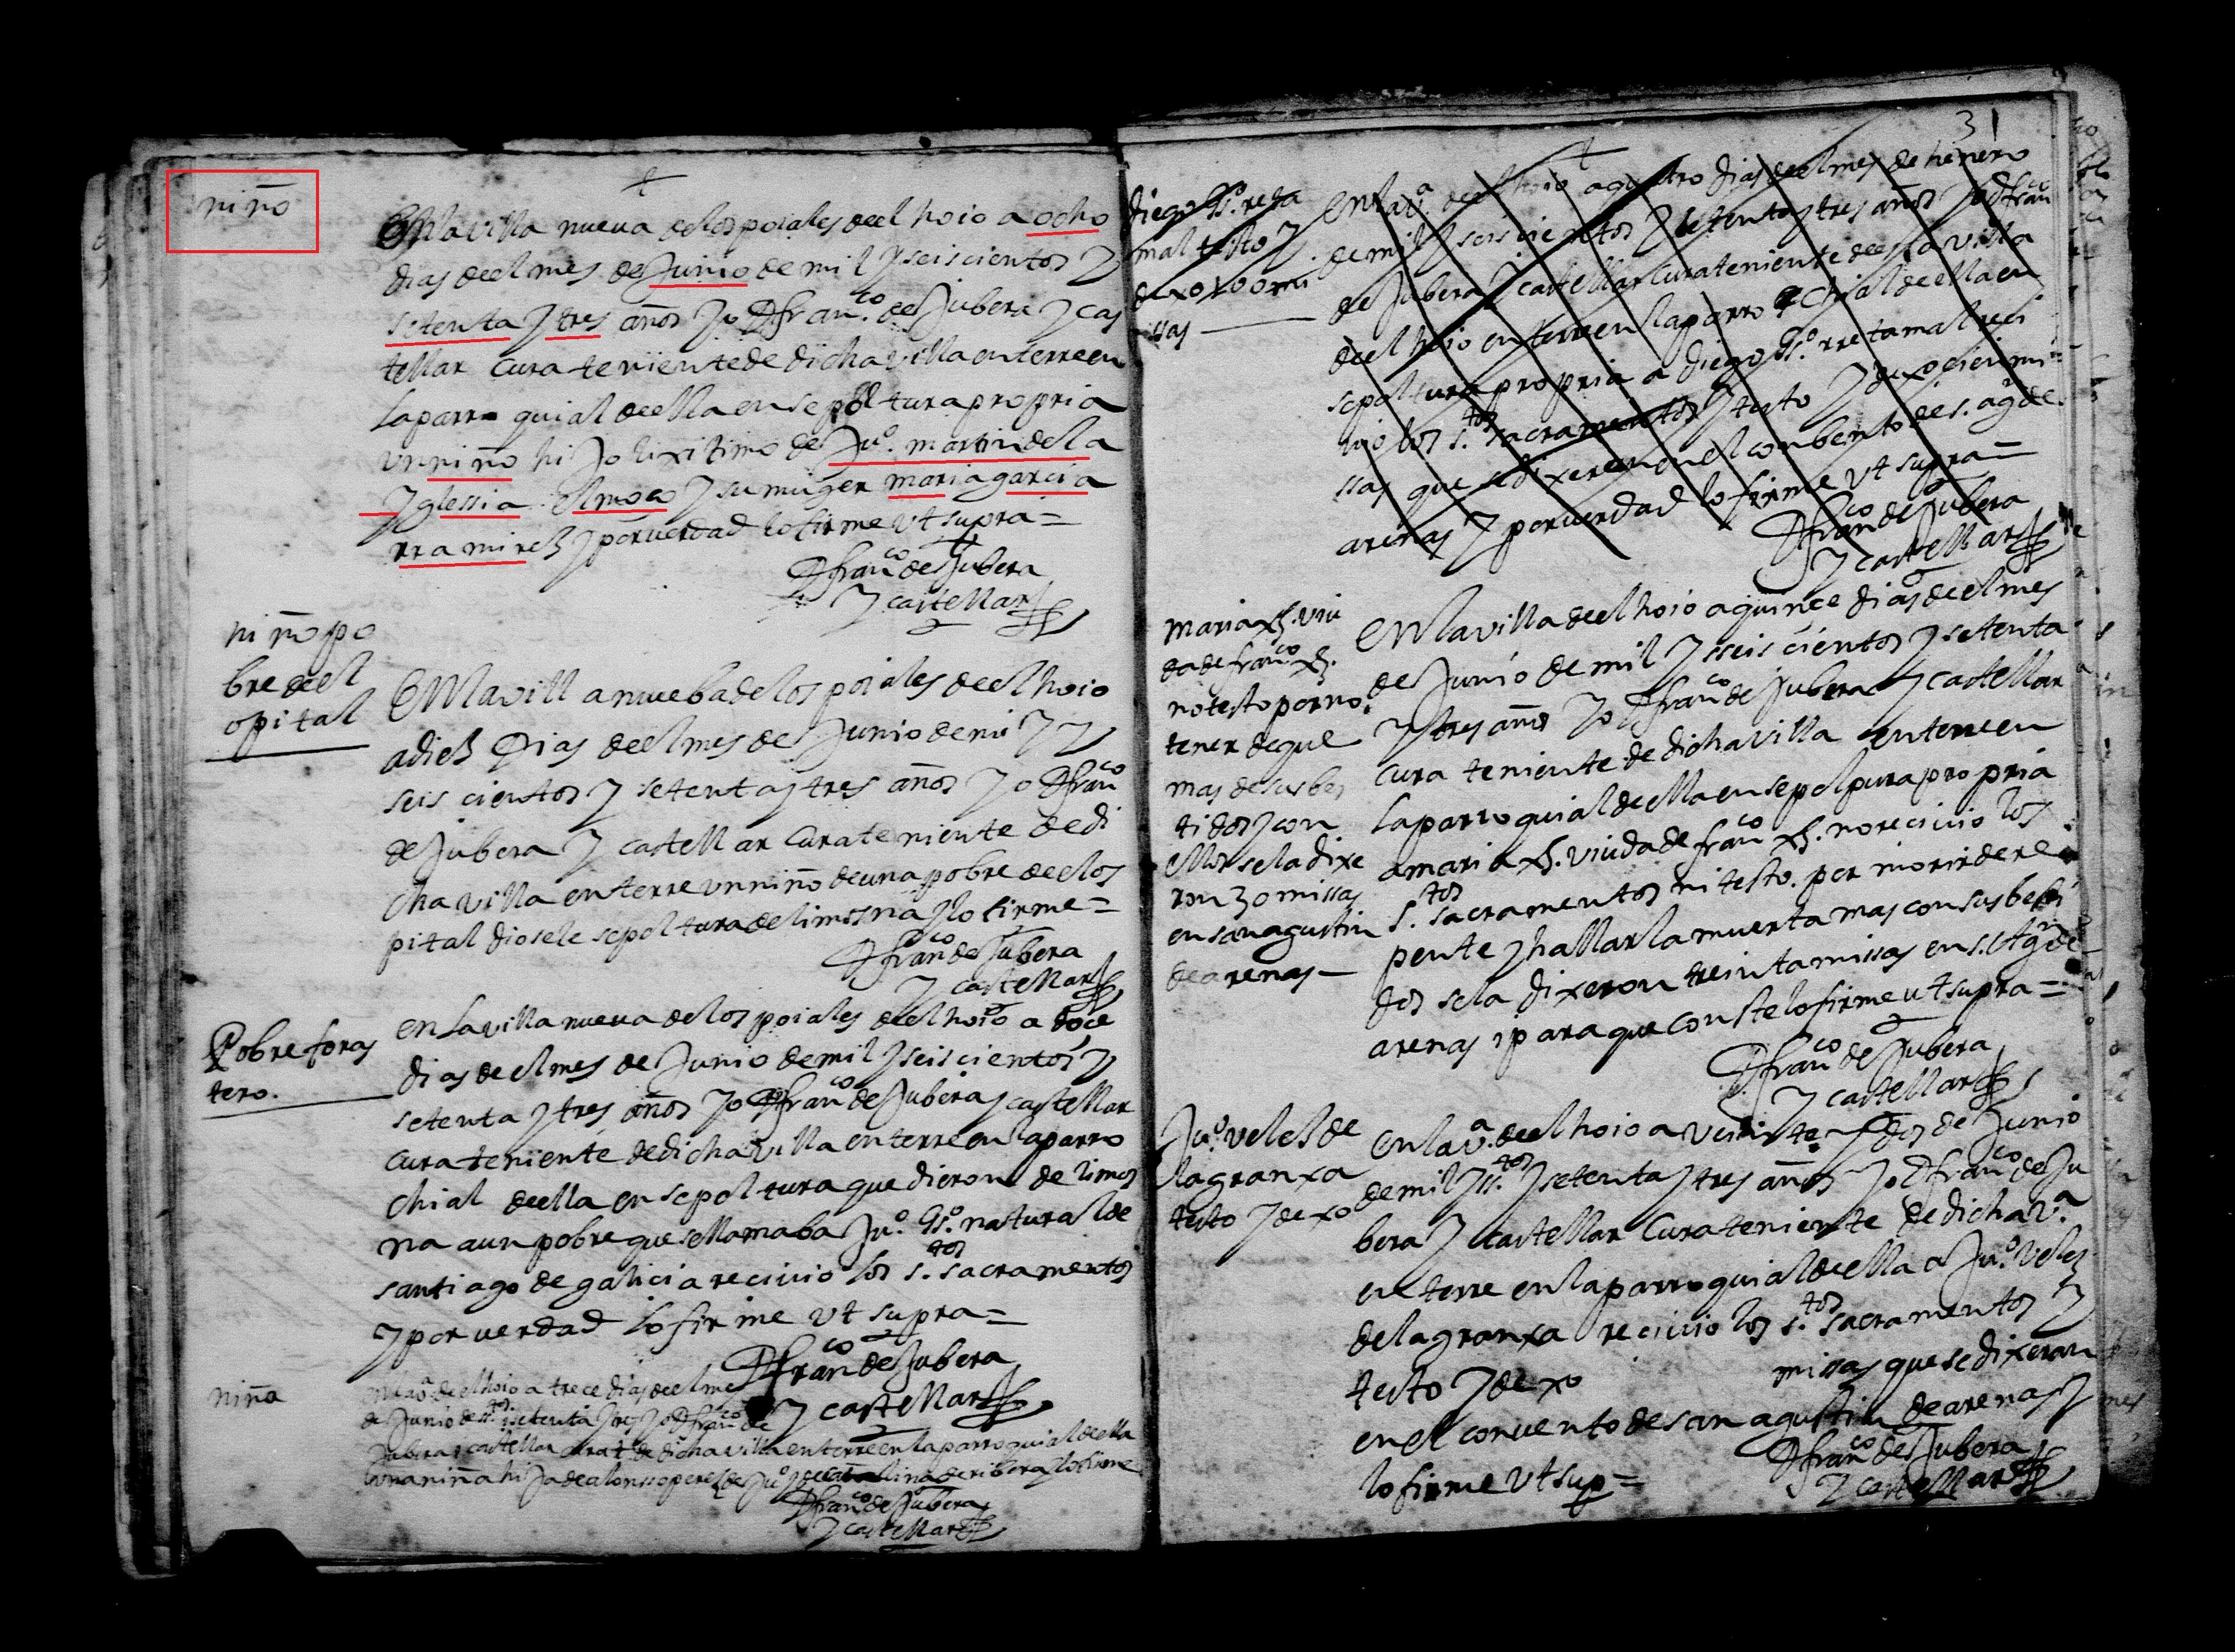 niño
En la villa nueva de los poiales deel hoio a ocho
dias deel mes de Junio de mil y seiscientos y
setenta y tres años yo D franco. de Jubera y cas
tellar cura teniente de dicha villa enterre en
la parroquial deella en sepoltura propria
un niño hijo lixitimo de Juo. martin de la
yglessia el moço y su muger maria garcia
rramirez y por verdad lo firme ut supra=
D franco de Jubera
y castellar
niño po
bre deel
opital
En la villa nueba de los poiales deel hoio
a diez Dias deel mes de Junio de mil y
seis cientos y setenta y tres años yo D franco
de Jubera y castellar cura teniente de di
cha villa enterre un niño de una pobre deelos
pital diosele sepoltura de limosna y lo firme=
D franco de Jubera
y castellar
Pobre foras
tero.
en La villa nueva de los poiales deel hoio a doce
dias deel mes de Junio de mil y seiscientos y
setenta y tres años yo D franco de Jubera y castellar
cura teniente de dicha villa enterre en la parro
chial deella en sepoltura que dieron de limos
na a un pobre que se llamaba Juo. Gso. natural de
santiago de galicia recivio los s.tos sacramentos
y por verdad lo firme ut supra=
D franco de Jubera
y castellar
niña
en la va. deel hoio a trece dias deel mes
de Junio de setenta y tres yo D franco de
Jubera y castellar curat de dicha villa enterre en la parroquial deella
una niña hija de alonsso perez de Juo y de catalina de ribera y lo firme
D franco de Jubera
y castellar
31
diego Gso. reta
mal testo y
dexo 100 mi
ssas
En la va. deel hoio a quatro dias deel mes de henero
de mil y seiscientos y setenta y tres años yo D franco
de Jubera y castellar cura teniente de esta villa
deel hoio enterre en la parrochial de ella en
sepoltura propria a diego Gso. rretamal reci
vio los s.tos sacramentos y testo y dexo cien mi
ssas que se dixeron en el conbento de s. agn de
arenas y por verdad lo firme ut supra=
D franco de Jubera
y castellar
maria xz. viu
da de franco xz.
no testo por no
tener de que
mas de sus bes
tidos y con
ellos se la dixe
ron 30 missas
en san agustin
de arenas
En la villa deel hoio a quince dias deel mes
de Junio de mil y sseis cientos y setenta
y tres años yo D franco de Jubera y castellar
cura teniente de dicha villa enterre en
la parroquial deella en sepoltura propria
a maria xz. viuda de franco xz. no recivio los
s.tos sacramentos ni testo. por morir de re
pente y hallarla muerta mas con sus besti
dos se la dixeron treinta missas en s. Agn de
arenas i para que conste lo firme ut supra=
D franco de Jubera
y castellar
Juo. veles de
la granxa
testo y dexo
En la va. deel hoio a veinte y dos de Junio
de mil y ss.tos y setenta y tres años yo D franco de Ju
bera y castellar cura teniente de dicha va.
enterre en la parroquial deella a Juo. velez
de la granxa recivio los s.tos sacramentos y
testo y dexo missas que se dixeran
en el convento de san agustin de arenas y
lo firme ut sup=
D franco de Jubera
y castellar